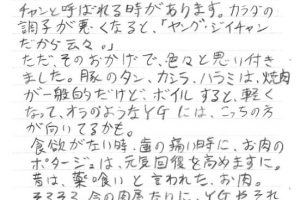 チャンと呼ばれる時があります。カラダの
調子が悪くなると、「ヤング・ジイチャン
だから云々。」
ただ、そのおかげで、色々と思い付き
ました。豚のタン、カシラ、ハラミは、焼肉
が一般的だけど、ボイルすると、軽く
なって、オラのようなYGには、こっちの方
が向いてるかも。
食欲がない時、歯の痛い時に、お肉の
ポタージュは、元気回復を高めますに。
昔は、薬喰いと言われた、お肉。
そろそろ、会の